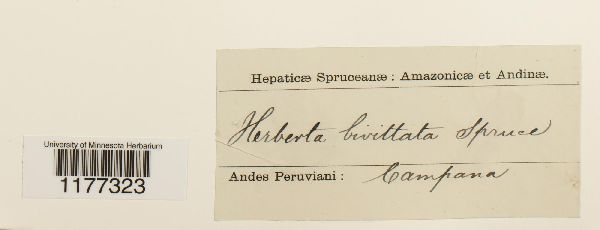 Hepaticæ Spruceanæ : Amazonicæ et Andinæ.
Herberta bivittata Spruce
Andes Peruviani : Campana
University of Minnesota Herbarium
1177323